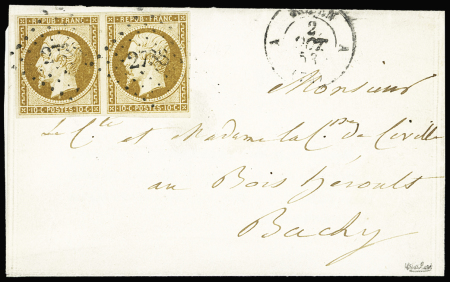 REPUB. FRANC. REPUB. FRANC.
2738
10·C·POSTES·10·C 10·C·POSTES·10·C
ROUEN
2
OCT.
53
A A
Monsieur
Le Cte et Madame la Csse de Civille
au Bois héroult
Buchy